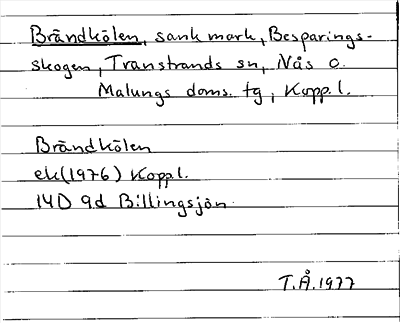 Brändkölen, sank mark, Besparings-
skogen, Transtrands sn, Nås o.
Malungs doms. tg, Kopp.l.
Brändkölen
ek(1976) Kopp.l.
14D 9d Billingsjön
T.Å.1977